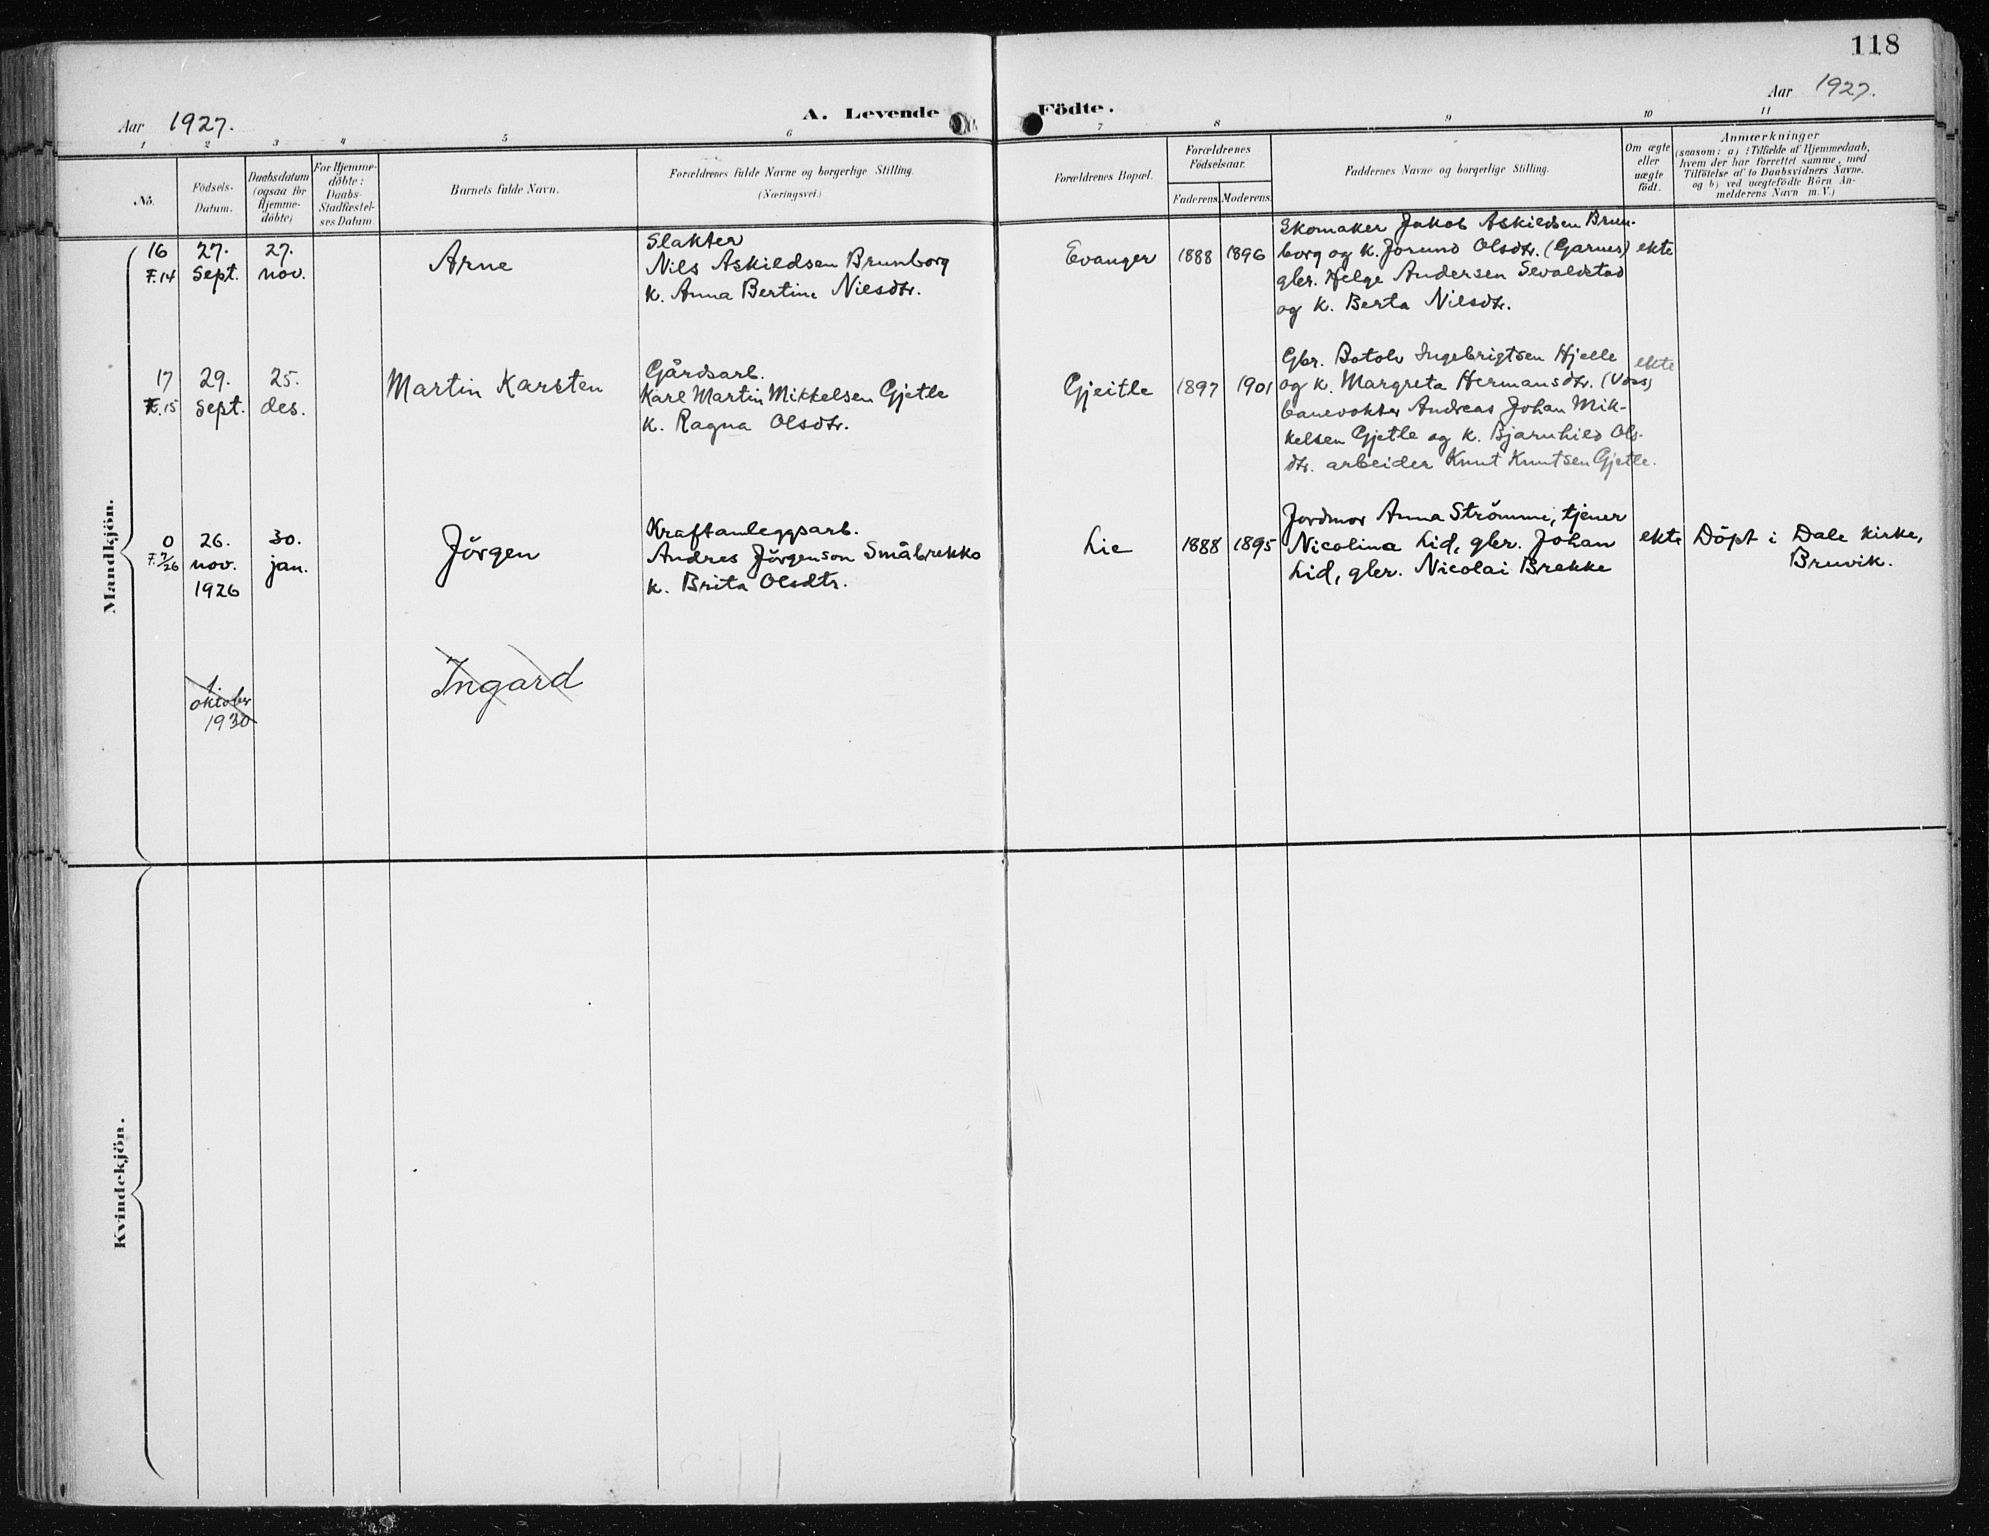 118
Aar 1927.
A. Levende Födte.
Aar 1927.
1 2 3 4 5 6 7 8 9 10 11
No.
Födsels-
Datum.
Daabsdatum
(ogsaa for
Hjemme-
döbte)
For Hjemme-
döbte:
Daabs-
Stadfæstel-
ses Datum.
Barnets fulde Navn.
Forældrenes fulde Navne og borgerlige Stilling.
(Næringsvei.)
Forældrenes Bopæl.
Forældrenes
Födselsaar.
Faderens. Moderens.
Faddernes Navne og borgerlige Stilling.
Om ægte
eller
uægte
födt.
Anmærkninger
(saasom: a) i Tilfælde af Hjemmedaab,
hvem der har forrettet samme, med
Tilföielse af to Daabsvidners Navne.
og b) ved uægtefödte Börn An-
melderens Navn m. V.)
Mandkjön.
16
F.14
27.
Sept.
27.
nov.
Arne
Slakter
Nils Askildsen Brunborg
k. Anna Bertine Nilsdtr.
Evanger
1888
1896
Skomaker Jakob Askildsen Brun-
borg og k. Jorund Olsdtr. (Garnes)
gbr. Helge Andersen Sevaldstad
og k. Berta Nilsdtr.
ekte
17
F.15
29.
Sept.
25.
des.
Martin Karsten
Gårdsarb.
Karl Martin Mikkelsen Gjetle
k. Ragna Olsdtr.
Gjeitle
1897
1901
Gbr. Botolv Ingebrigtsen Hjelle
og k. Margreta Hermansdtr. (Voss)
banevokter Andreas Johan Mik-
kelsen Gjetle og k. Bjarnhild Ols-
dtr. arbeider Knut Knutsen Gjetle.
ekte
0
26.
nov.
1926
30.
jan.
Jörgen
Kraftanleggsarb.
Andres Jörgenson Småbrekke
k. Brita Olsdtr.
Lie
1888
1895
Jordmor Anna Strömme, tjener
Nicolina Lid, gbr. Johan
Lid, gbr. Nicolai Brekke
ekte
Döpt i Dale kirke,
Bruvik.
1.
oktober
1930
Ingard
Kvindekjön.